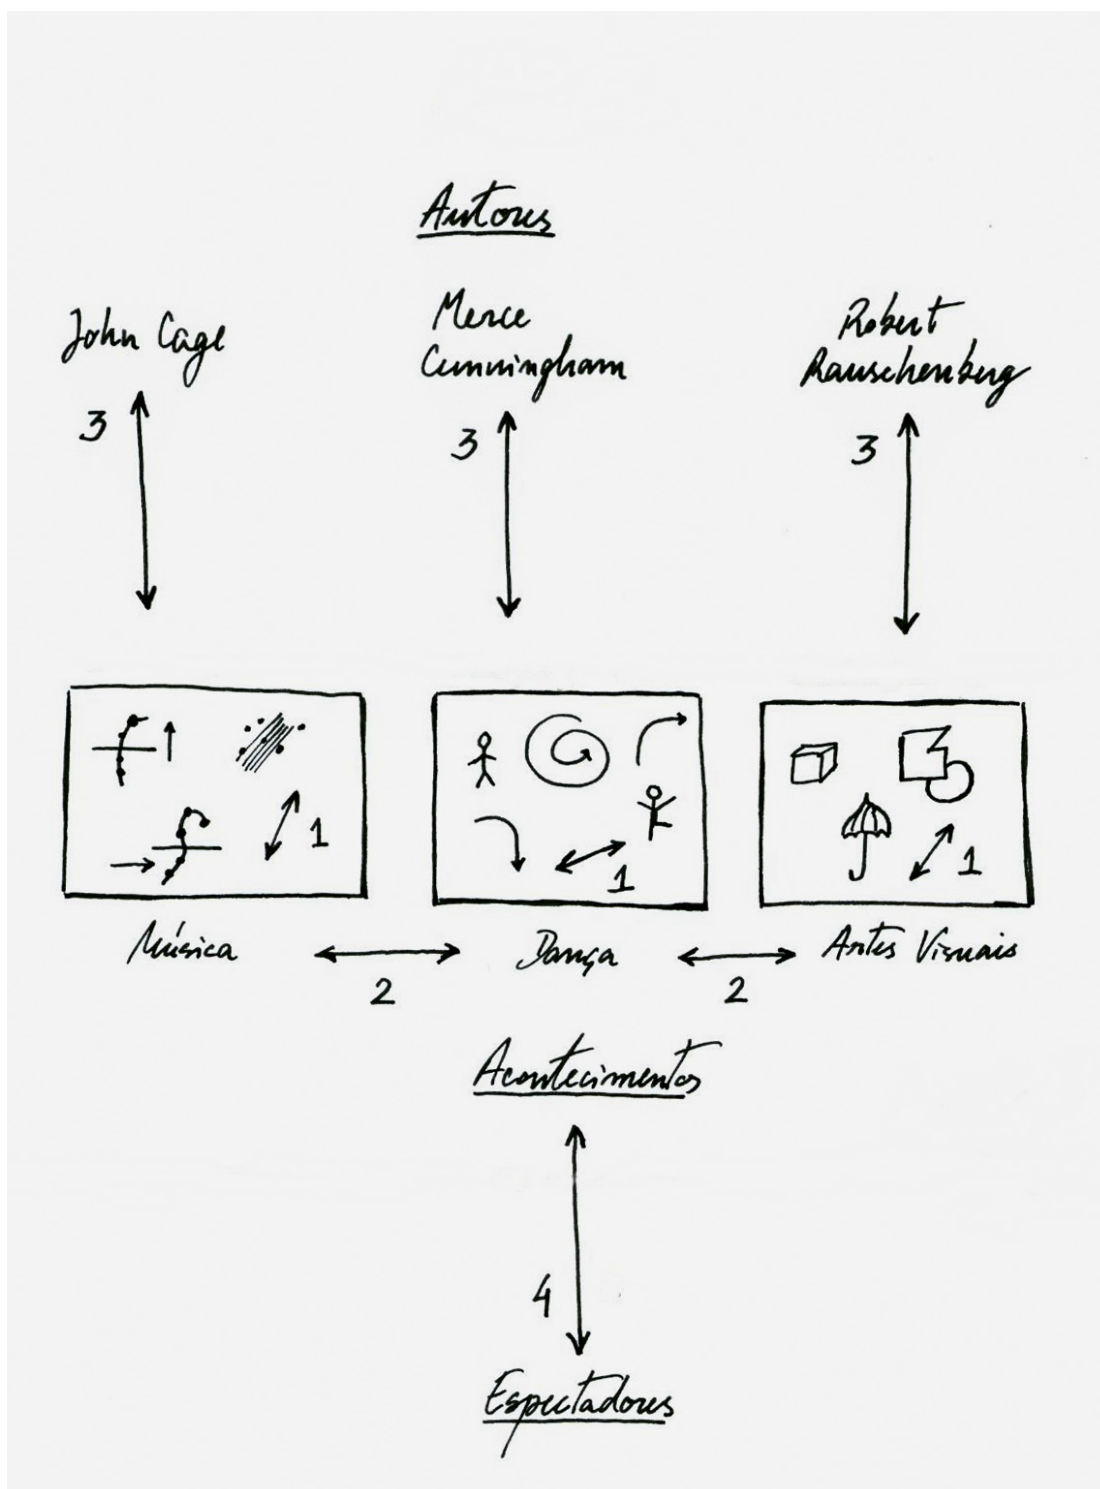 Autores
John Cage
Merce
Cunningham
Robert
Rauschenberg
3
3
3
1
1
1
Música
Dança
Artes Visuais
2
2
Acontecimentos
4
Espectadores